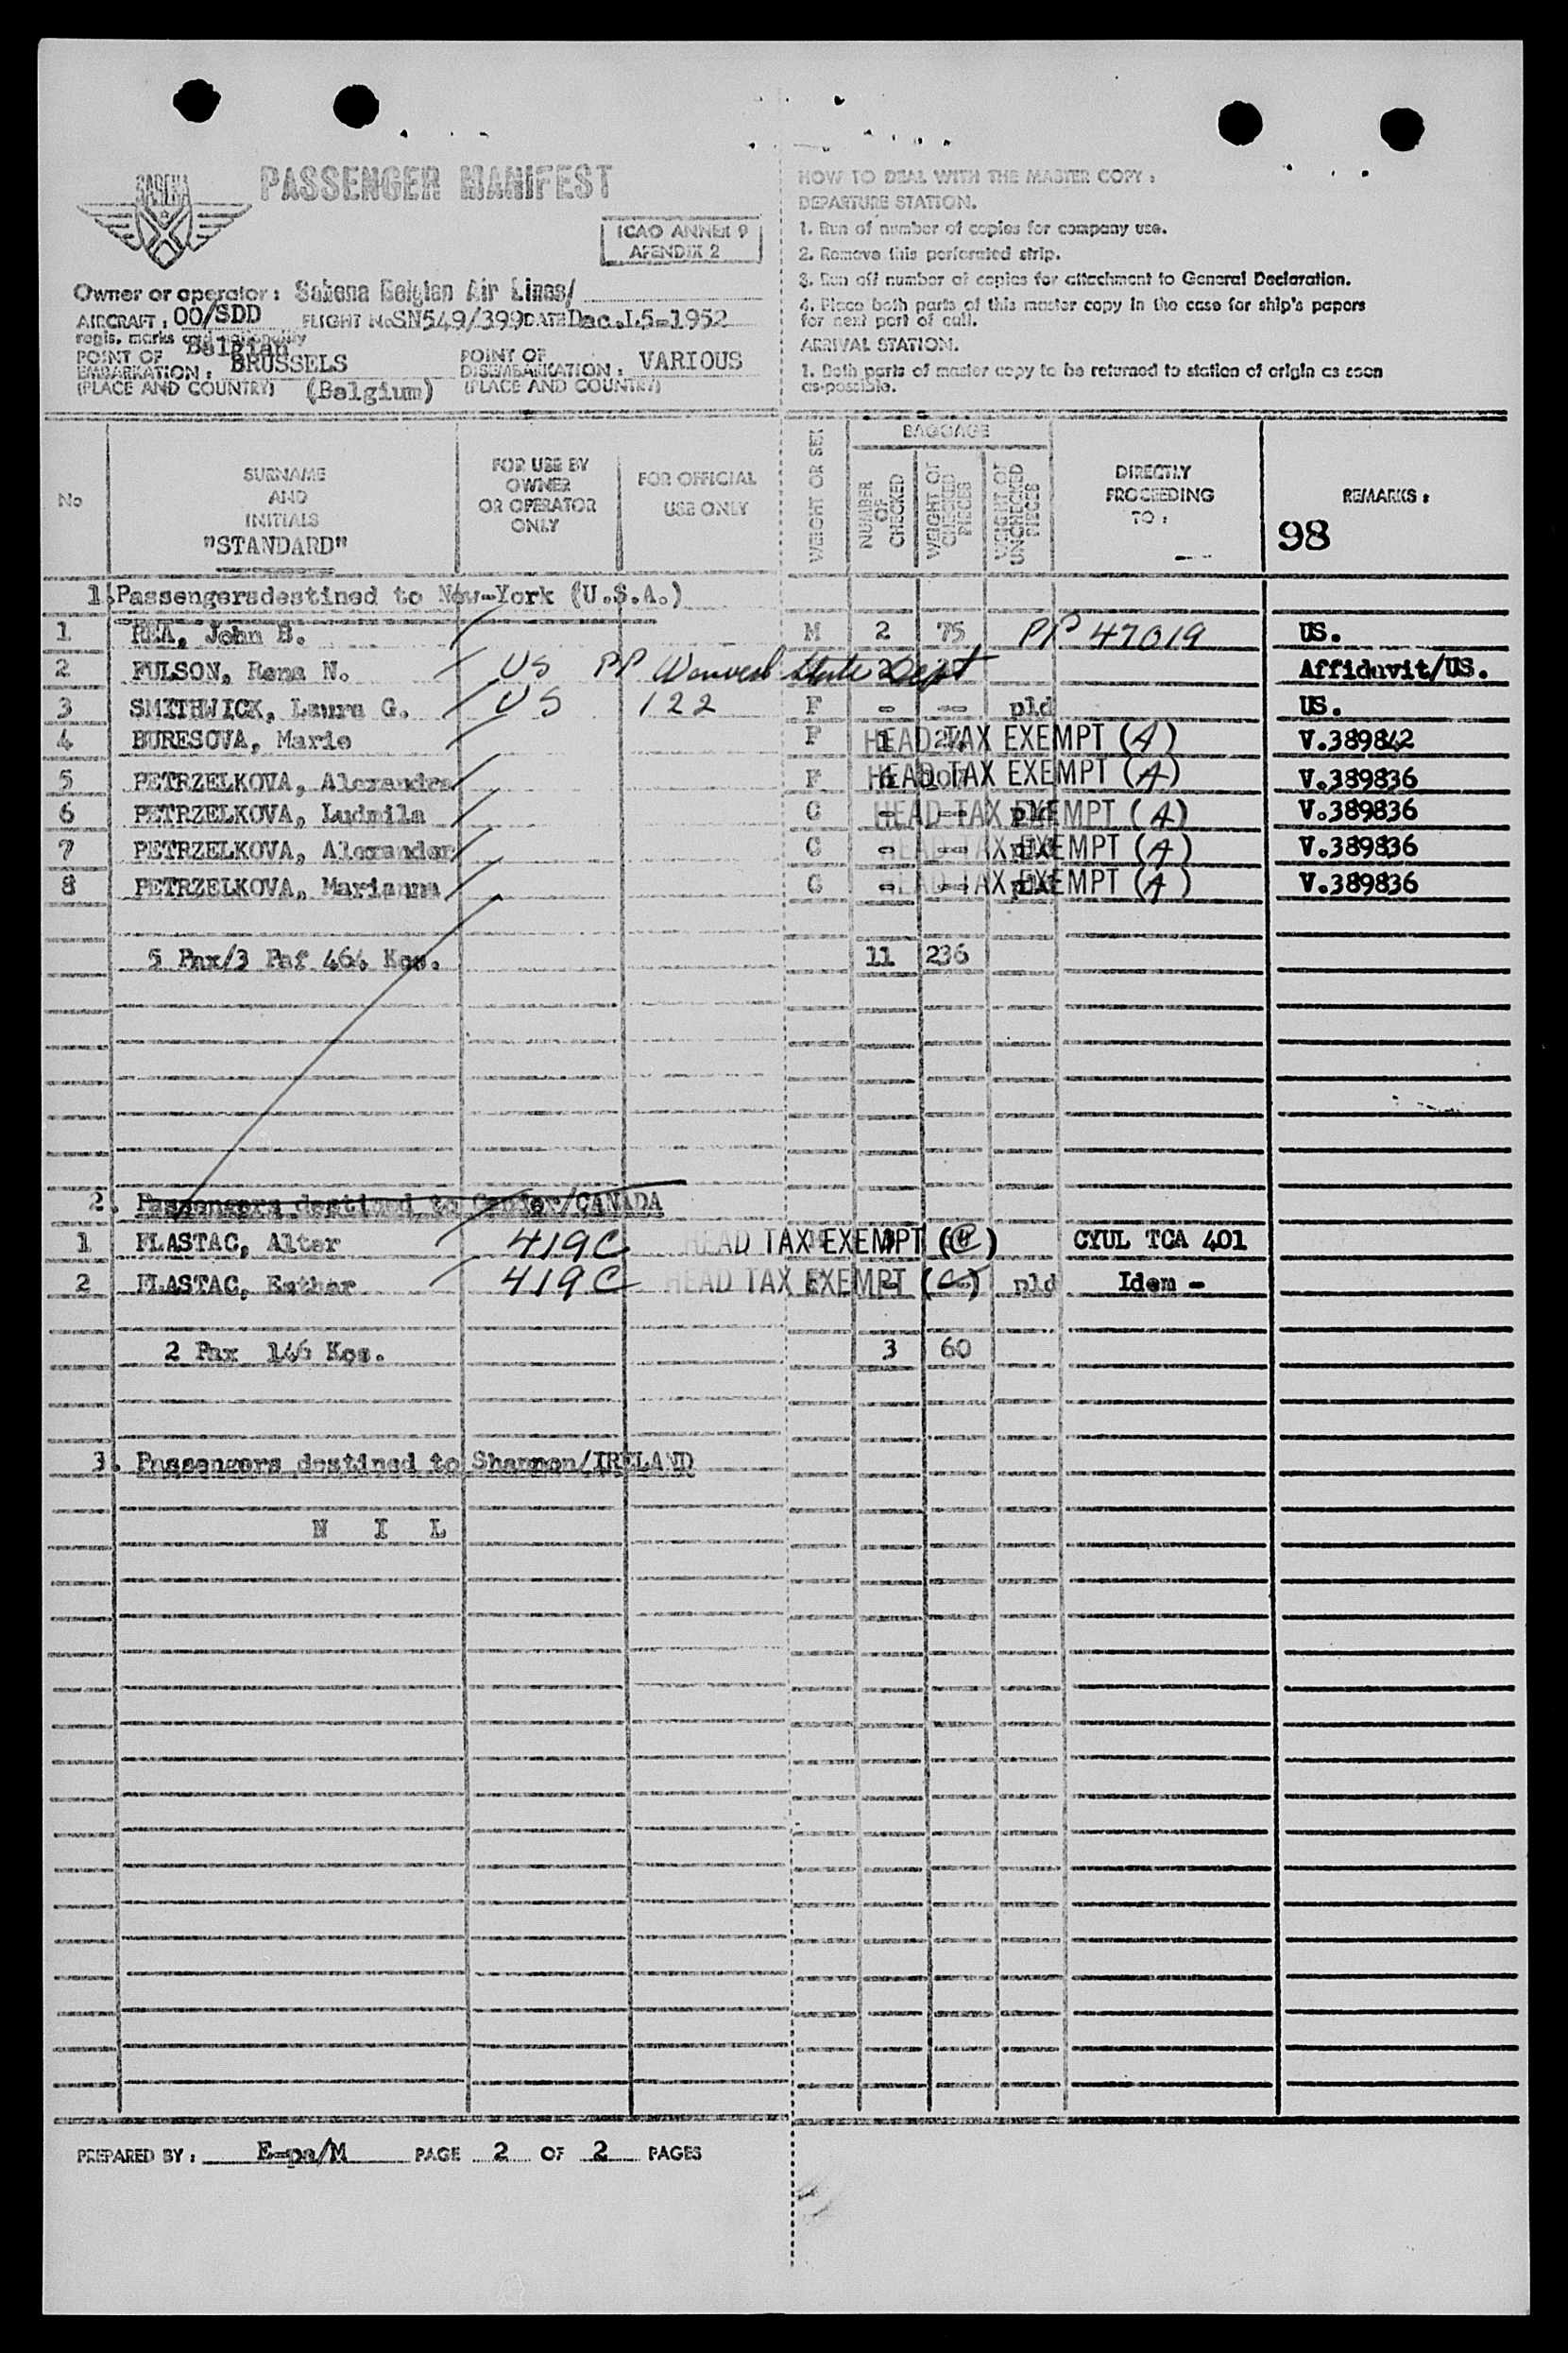 SABENA
PASSENGER MANIFEST
ICAO ANNEX 9
APENDIX 2
Owner or operator : Sabena Belgian Air Lines/
AIRCRAFT : OO/SDD FLIGHT No SN549/399 DATE Dec.15-1952
regis. marks and nationality Belgian
POINT OF EMBARKATION : BRUSSELS POINT OF DISEMBARKATION : VARIOUS
(PLACE AND COUNTRY) (Belgium) (PLACE AND COUNTRY)
HOW TO DEAL WITH THE MASTER COPY :
DEPARTURE STATION.
1. Run of number of copies for company use.
2. Remove this perforated strip.
3. Run off number of copies for attachment to General Declaration.
4. Place both parts of this master copy in the case for ship's papers
for next port of call.
ARRIVAL STATION.
1. Both parts of master copy to be returned to station of origin as soon
as possible.
No
SURNAME
AND
INITIALS
"STANDARD"
FOR USE BY
OWNER
OR OPERATOR
ONLY
FOR OFFICIAL
USE ONLY
WEIGHT OR SEX
BAGGAGE
NUMBER OF CHECKED
WEIGHT OF CHECKED PIECES
WEIGHT OF UNCHECKED PIECES
DIRECTLY
PROCEEDING
TO :
REMARKS :
98
1. Passengersdestined to New-York (U.S.A.)
1 REA, John B. M 2 75 PP 47019 US.
2 FULSON, Rena N. US PP State Dept Affiduvit/US.
3 SMITHWICK, Laura G. US 122 F - -- pld US.
4 BURESOVA, Marie F 1 HEAD TAX EXEMPT (A) V.389842
5 PETRZELKOVA, Alexandra F HEAD TAX EXEMPT (A) V.389836
6 PETRZELKOVA, Ludmila C - -- pld HEAD TAX EXEMPT (A) V.389836
7 PETRZELKOVA, Alexander C - -- pld HEAD TAX EXEMPT (A) V.389836
8 PETRZELKOVA, Marianna C - -- pld HEAD TAX EXEMPT (A) V.389836
5 Pax/3 Paf 464 Kgs. 11 236
2. Passengers destined to Gander/CANADA
1 FLASTAC, Alter 419C HEAD TAX EXEMPT (C) CYUL TCA 401
2 FLASTAC, Esther 419C HEAD TAX EXEMPT (C) pld Idem -
2 Pax 146 Kgs. 3 60
3. Passengers destined to Shannon/IRELAND
N I L
PREPARED BY : E-pa/M PAGE 2 OF 2 PAGES